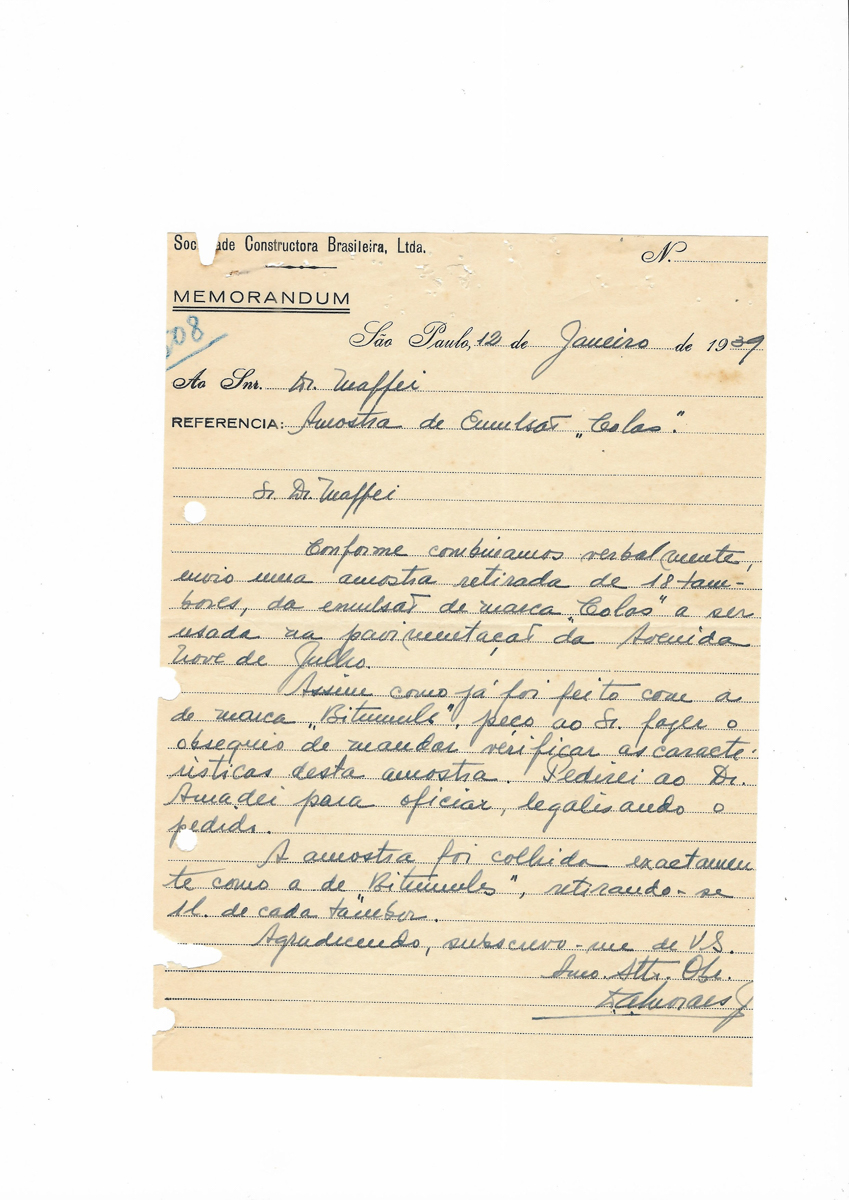 Soc ade Constructora Brasileira, Ltda.
N.
MEMORANDUM
508
São Paulo, 12 de Janeiro de 1939
Ao Snr. Dr. Maffei
REFERENCIA: Amostra de Emulsão „Colas".
Sr. Dr. Maffei
Conforme combinamos verbalmente,
envio uma amostra retirada de 18 tam-
bores, da emulsão de marca „Colas" a ser
usada na pavimentação da Avenida
Nove de Julho.
Assim como já foi feito com a
de marca „Bitumuls", peço ao Sr. fazer o
obsequio de mandar verificar as caracte-
risticas desta amostra. Pedirei ao Dr.
Amadei para oficiar, legalisando o
pedido.
A amostra foi colhida exactamen
te como a de "Bitumules", retirando-se
1l. de cada tambor.
Agradecendo, subscrevo-me de V.S.
Amo. Attr. Obr.